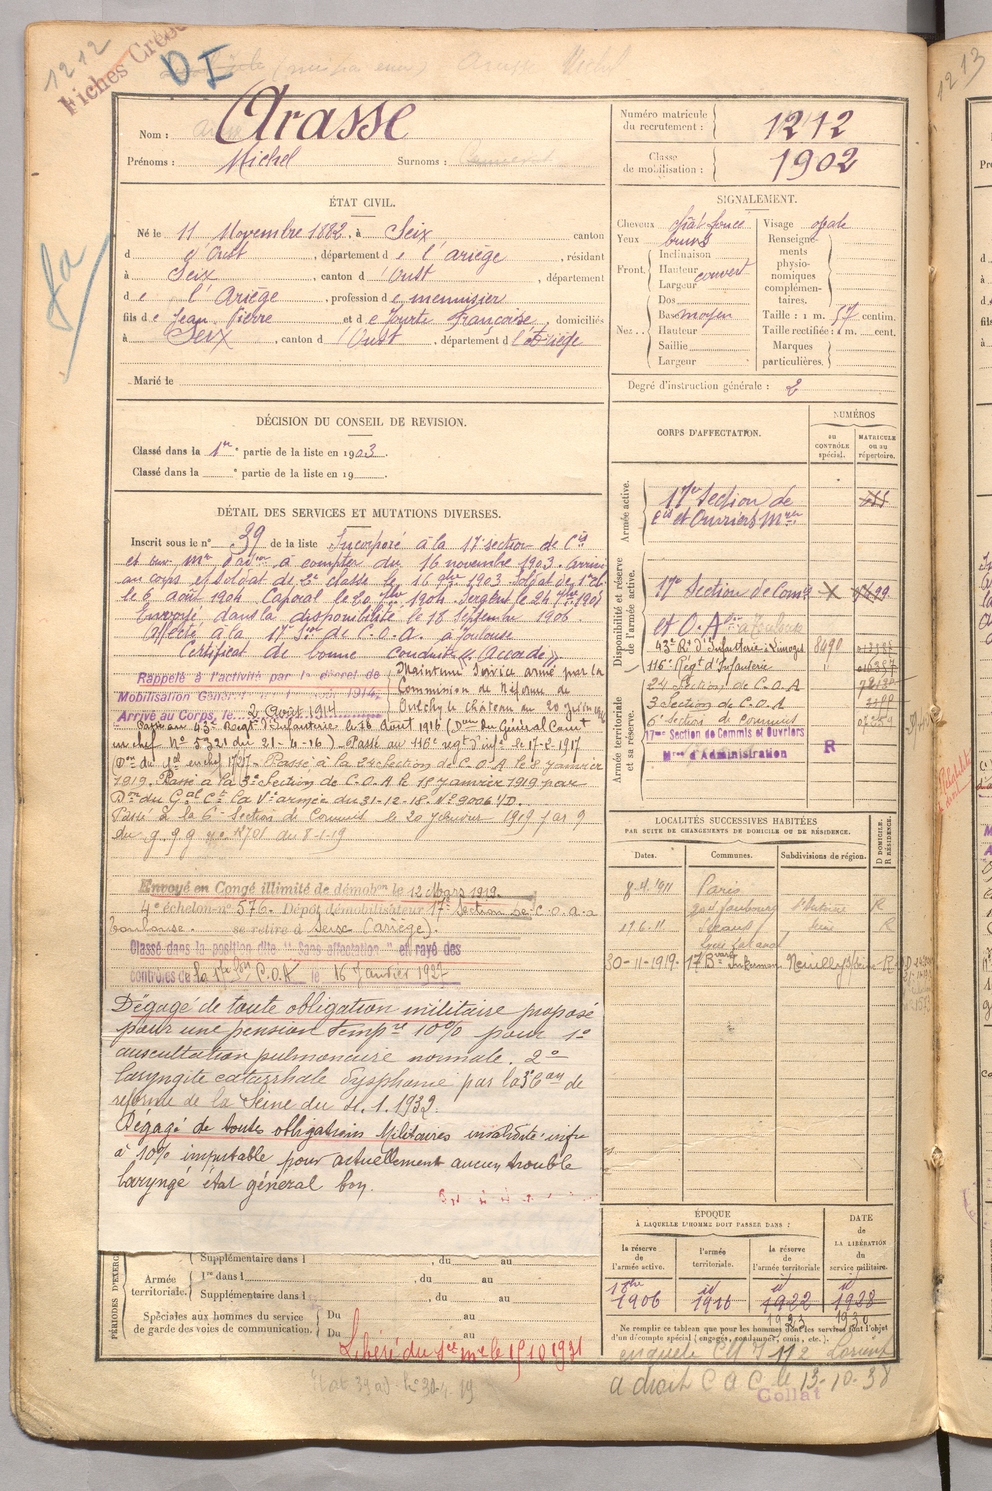 1212
Fiches
DI
Nom : Arasse
Prénoms : Michel Surnoms :
Numéro matricule du recrutement : 1212
Classe de mobilisation : 1902
ÉTAT CIVIL.
Né le 11 Novembre 1882, à Seix canton
d'Oust, département de l'ariège, résidant
à Seix, canton d'Oust département
de l'Ariège, profession de menuisier
fils de Jean Pierre et de Fourté Françoise, domiciliés
à Seix, canton d'Oust, département de l'Ariège
Marié le
SIGNALEMENT.
Cheveux chât foncé
Yeux bruns
Front. Inclinaison
Hauteur couvert
Largeur
Nez. Dos
Base moyen
Hauteur
Saillie
Largeur
Visage ovale
Renseignements physionomiques complémentaires.
Taille : 1 m. 57 centim.
Taille rectifiée : 1 m. cent.
Marques particulières.
Degré d'instruction générale : 2
DÉCISION DU CONSEIL DE REVISION.
Classé dans la 1re partie de la liste en 1903
Classé dans la partie de la liste en 19
DÉTAIL DES SERVICES ET MUTATIONS DIVERSES.
Inscrit sous le n° 39 de la liste Incorporé à la 17e section de Cis
et ouv. Mres d'adion à compter du 16 novembre 1903. arrivé
au corps et soldat de 2e classe le 16 9bre 1903 Soldat de 1e cl
le 6 août 1904 Caporal le 20 1904 Sergent le 24
Envoyé dans la disponibilité le 18 Septembre 1906
Affecté à la 17e Son de C.O.A. à Toulouse
Certificat de bonne conduite "Accordé"
Rappelé à l'activité par le décret de
Mobilisation Générale 1914
Arrivé au Corps, le 2 Août 1914
Maintenu Service armé par la
Commission de Réforme de
Oulchy le château du 20 juin
Passé au 43e Régt d'Infanterie le 16 Août 1916 (Don du Général Comt
en chef N° 5321 du 21-4-16). Passé au 116e régt d'infie le 17-2-1917
Passé à la 24e Section de C.O.A le 8 janvier
1919. Passé à la 3e Section de C.O.A le 18 janvier 1919 par
Don du Gal Ct la Ve armée du 31-12-18. N° 9006 1/D.
Passé à la 6e section de Commis le 20 février 1919 par
du g. q. g. n° 18701 du 8-1-19
Envoyé en Congé illimité de démobon le 12 Mars 1919.
4e échelon n° 576. Dépôt démobilisateur 17e Section de C.O.A à
Toulouse. se retire à Seix (ariège).
Classé dans la position dite "Sans affectation" et rayé des
contrôles de la 17e Son C.O.A le 16 Janvier 1927
Dégagé de toute obligation militaire proposé
pour une pension tempre 10% pour 1°
auscultation pulmonaire normale. 2°
laryngite catarrhale dysphonie par la 3e Con de
réforme de la Seine du 1.1932.
Dégagé de toutes obligations Militaires invalidité infre
à 10% imputable pour actuellement aucun trouble
laryngé état général bon.
CORPS D'AFFECTATION.
NUMÉROS
au contrôle spécial.
matricule ou au répertoire.
Armée active.
17e Section de
Cis et Ouvriers Mres
Disponibilité et réserve de l'armée active.
17e Section de Coms
et O.A à Toulouse
43e Rt d'Infanterie Limoges 8490
116e Régt d'Infanterie
Armée territoriale et sa réserve.
24 Section de C.O.A
3 Section de C.O.A
6e Section de Commis
17me Section de Commis et Ouvriers
Mres d'Administration R
LOCALITÉS SUCCESSIVES HABITÉES
PAR SUITE DE CHANGEMENTS DE DOMICILE OU DE RÉSIDENCE.
Dates. Communes. Subdivisions de région. D DOMICILE. R RÉSIDENCE.
1911 Paris
faubourg St Antoine R
Sceaux Seine R
30-11-1919 17 Bvard Inkerman Neuilly s/Seine R
PÉRIODES D'EXERC
Supplémentaire dans l , du au
Armée territoriale.
1re dans l , du au
Supplémentaire dans l , du au
Spéciales aux hommes du service de garde des voies de communication.
Du au
Du au
Libéré du sce mre le 15 10 1931
ÉPOQUE
À LAQUELLE L'HOMME DOIT PASSER DANS :
la réserve de l'armée active. l'armée territoriale. la réserve de l'armée territoriale
DATE de LA LIBÉRATION du service militaire.
1906 1916 1922 1928
1930
Ne remplir ce tableau que pour les hommes dont les services font l'objet
d'un décompte spécial (engagés, condamnés, omis, etc.).
a droit C a C le 13-10-38
Collat
1213